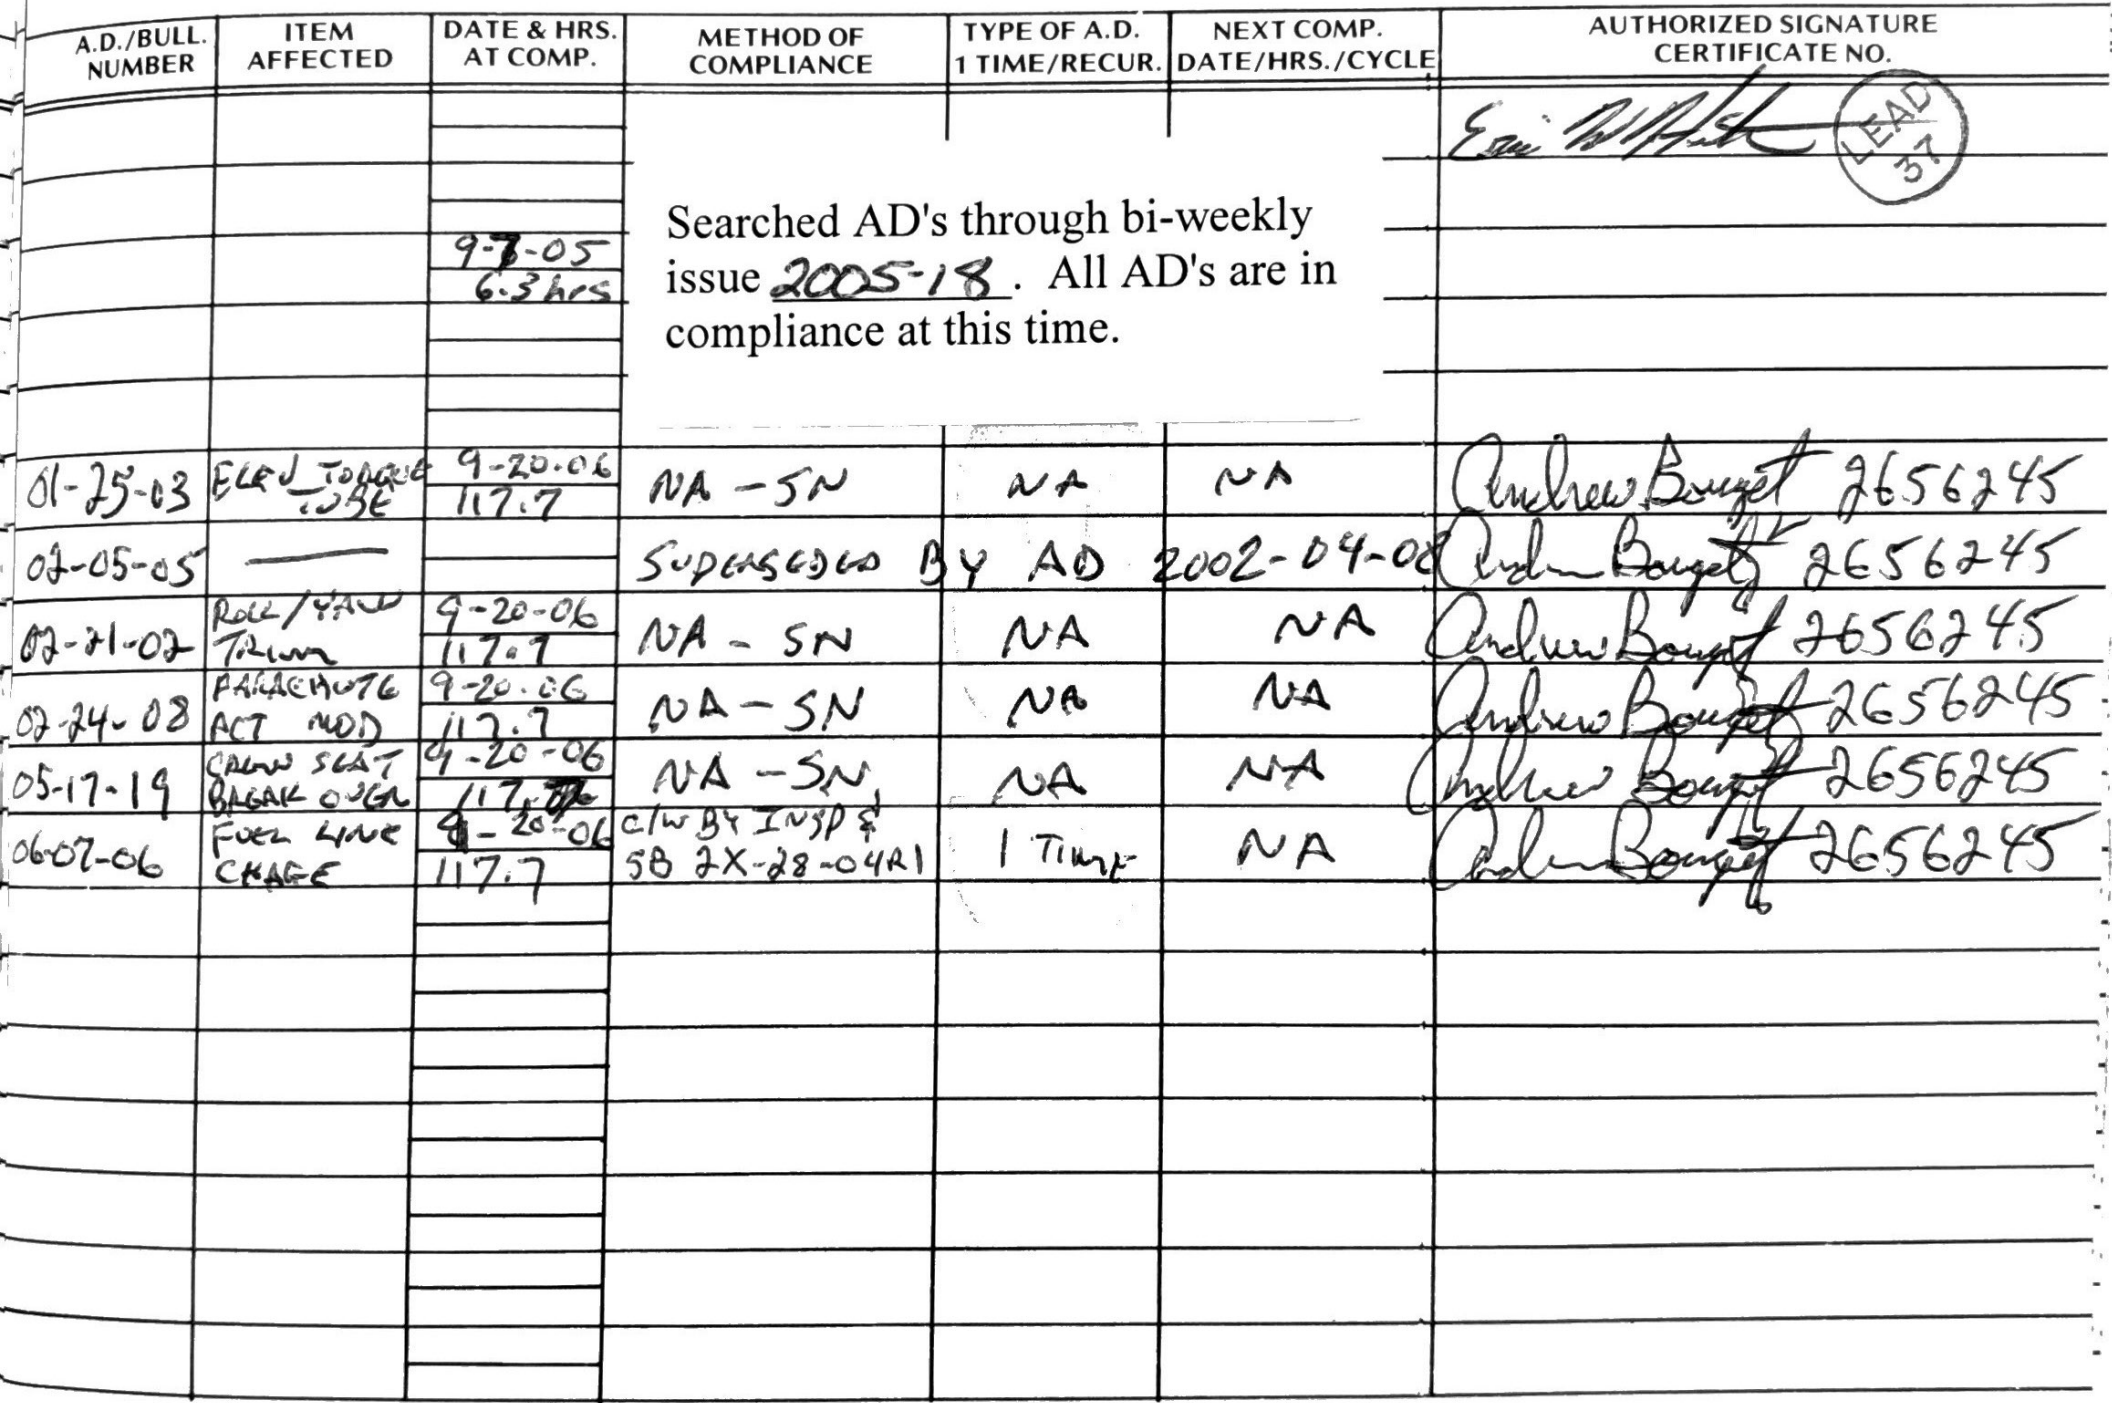 A.D./BULL. NUMBER ITEM AFFECTED DATE & HRS. AT COMP. METHOD OF COMPLIANCE TYPE OF A.D. 1 TIME/RECUR. NEXT COMP. DATE/HRS./CYCLE AUTHORIZED SIGNATURE CERTIFICATE NO.
LEAD
37
9-7-05
6.3 hrs
Searched AD's through bi-weekly
issue 2005-18. All AD's are in
compliance at this time.
01-25-03 ELEV TORQUE TUBE 9-20-06 117.7 NA - SN NA NA Andrew Bouget 2656245
02-05-05 — SUPERSEDED BY AD 2002-04-08 Andrew Bouget 2656245
02-21-02 ROLL/YAW TRIM 9-20-06 117.7 NA - SN NA NA Andrew Bouget 2656245
02-24-08 PARACHUTE ACT MOD 9-20-06 117.7 NA - SN NA NA Andrew Bouget 2656245
05-17-19 CREW SEAT BREAK OVER 9-20-06 NA - SN NA NA Andrew Bouget 2656245
06-07-06 FUEL LINE CHAGE 9-20-06 117.7 C/W BY INSP & SB 2X-28-04R1 1 TIME NA Andrew Bouget 2656245